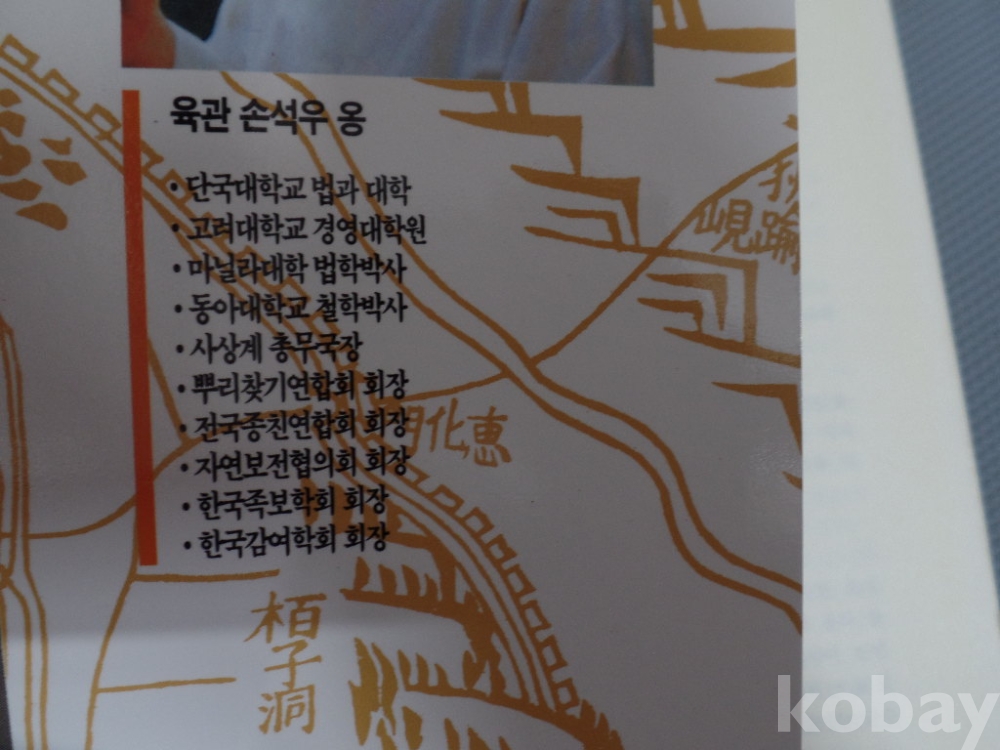 육관 손석우 옹
• 단국대학교 법과 대학
• 고려대학교 경영대학원
• 마닐라대학 법학박사
• 동아대학교 철학박사
• 사상계 총무국장
• 뿌리찾기연합회 회장
• 전국종친연합회 회장
• 자연보전협의회 회장
• 한국족보학회 회장
• 한국감여학회 회장
門化惠
峴踰
栢子洞
kobay